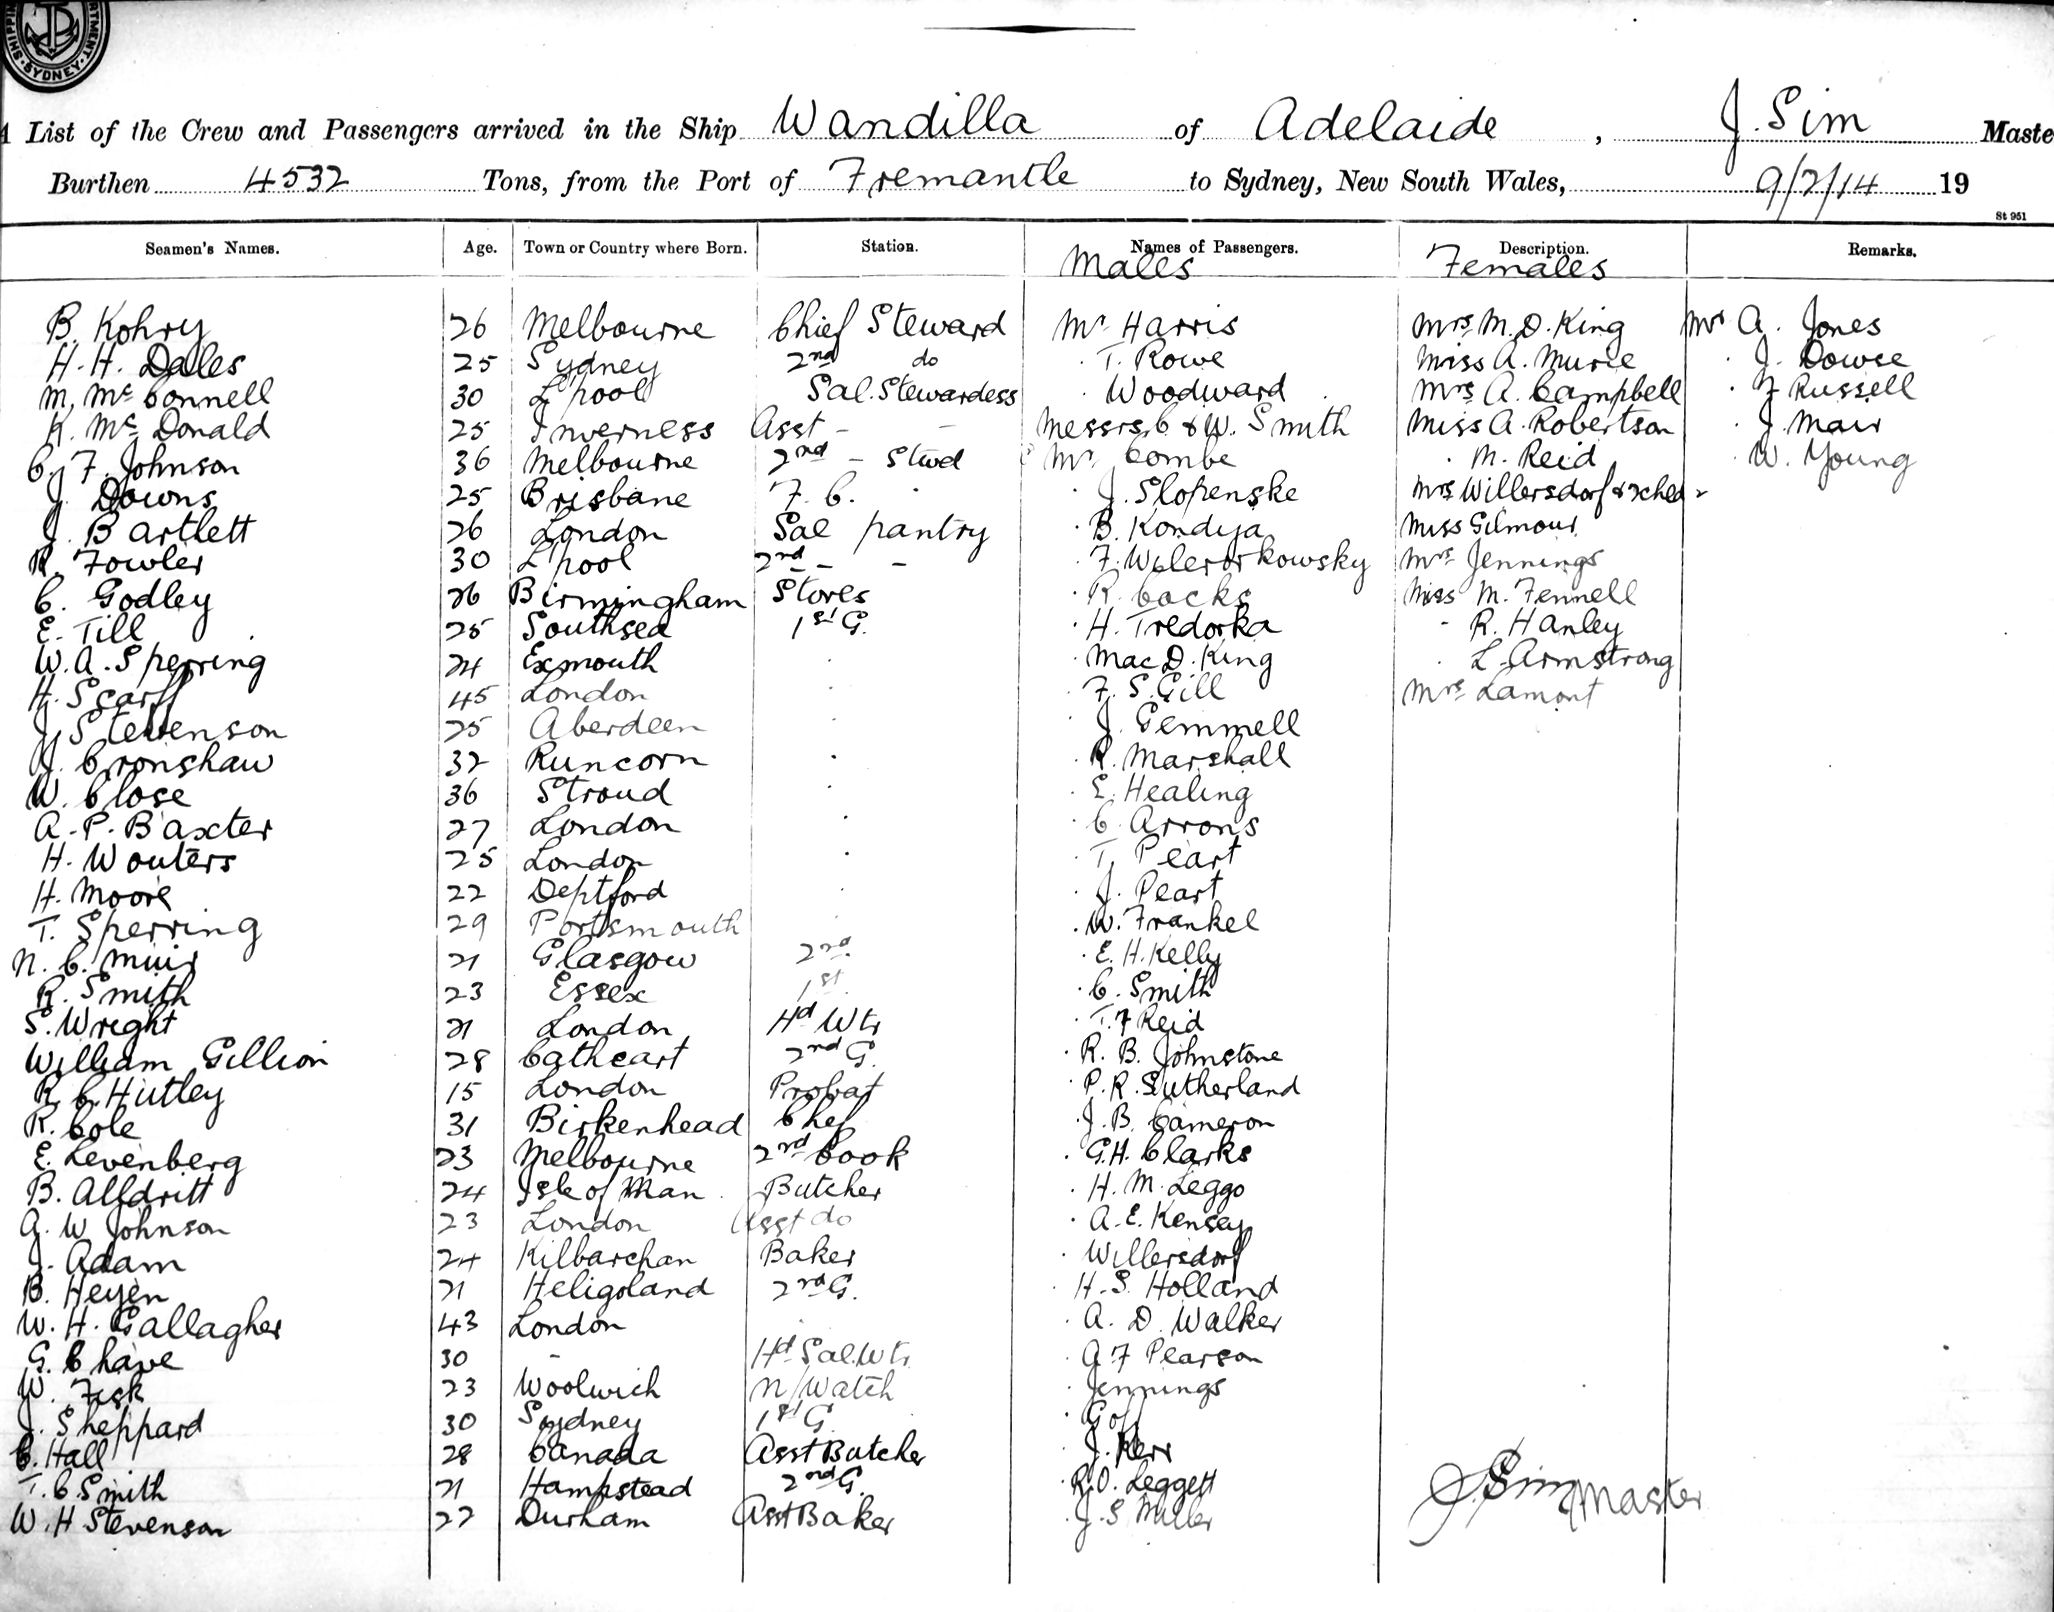 SHIPPING DEPARTMENT. SYDNEY.
A List of the Crew and Passengers arrived in the Ship Wandilla of Adelaide, J. Sim Maste
Burthen 4532 Tons, from the Port of Fremantle to Sydney, New South Wales, 9/2/14 19
St 951
Seamen's Names. Age. Town or Country where Born. Station. Names of Passengers. Description. Remarks.
Males Females
B. Kohry 26 Melbourne Chief Steward Mr Harris Mrs M. D. King Mr A. Jones
H. H. Dales 25 Sydney 2nd do · T. Rowe Miss A. Murie · J. Dowse
M. McConnell 30 L'pool Sal. Stewardess · Woodward Mrs A. Campbell · F Russell
K. McDonald 25 Inverness Asst - - Messrs C & W. Smith Miss A. Robertson · J. Mair
C. F. Johnson 36 Melbourne 2nd - Stwd Mr Combe · M. Reid · W. Young
J. Downs 25 Brisbane F. C. · J. Slopenske Mrs Willersdorf & 2 child
J. Bartlett 26 London Sal pantry · B. Kondija Miss Gilmour
R. Fowler 30 L'pool 2nd - - · F. Mrs Jennings
C. Godley 26 Birmingham Stores · R. Cocks Miss M. Fennell
E. Till 25 Southsea 1st G. · H. Tredorka - R. Hanley
W. A. Sperring 24 Exmouth · · Mac D. King · L. Armstrong
H. Scarff 45 London · · F. S. Gill Mrs Lamont
J. Stevenson 25 Aberdeen · · J. Gemmell
J. Cronshaw 32 Runcorn · · R. Marshall
W. Close 36 Stroud · · E. Healing
A. P. Baxter 27 London · · C. Arrons
H. Wouters 25 London · · T. Peart
H. Moore 22 Deptford · · J. Peart
T. Sperring 29 Portsmouth · · W. Frankel
N. C. Muir 21 Glasgow 2nd · E. H. Kelly
R. Smith 23 Essex 1st · C. Smith
S. Wright 21 London Hd Wtr · T. F Reid
William Gillion 28 Cathcart 2nd G. · R. B. Johnstone
R. C. Hutley 15 London Probat · P. R. Sutherland
R. Cole 31 Birkenhead Chef · J. B. Cameron
E. Levenberg 23 Melbourne 2nd Cook · G. H. Clarks
B. Alldritt 24 Isle of Man Butcher · H. M. Leggo
A. W Johnson 23 London Asst do · A. E. Kensey
J. Adam 24 Kilbarchan Baker · Willersdorf
B. Heyen 21 Heligoland 2nd G. · H. S. Holland
W. H. Gallagher 43 London · · A. D. Walker
G. Chave 30 - Hd Sal. Wtr · A F Pearson
W. Fisk 23 Woolwich N/Watch · Jennings
J. Sheppard 30 Sydney 1st G · Goff
C. Hall 28 Canada Asst Butcher · J. Kerr
T. C. Smith 21 Hampstead 2nd G. · R. O. Leggett
W. H Stevenson 22 Durham Asst Baker · J. S Miller
J Sim Master